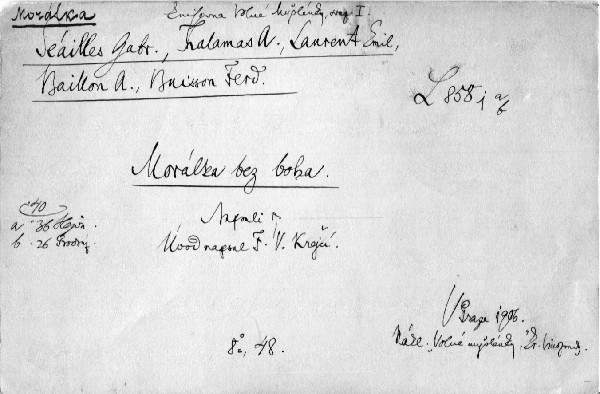 Morálka
Knihovna Volné Myšlenky, svaz. I.
Séailles Gabr., Thalamas A., Laurent Emil,
Baillon A., Buisson Ferd.
L 858 j a/b
Morálka bez boha.
Napsali
Úvod napsal F. V. Krejčí.
40
a 36
b 26
V Praze 1906.
Nákl. Volné myšlenky.
8°, 48.